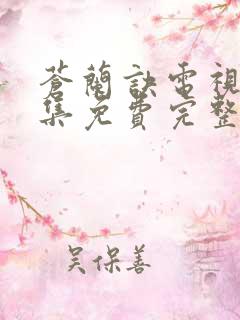 蒼蘭訣電視
集免費完整
吴保善